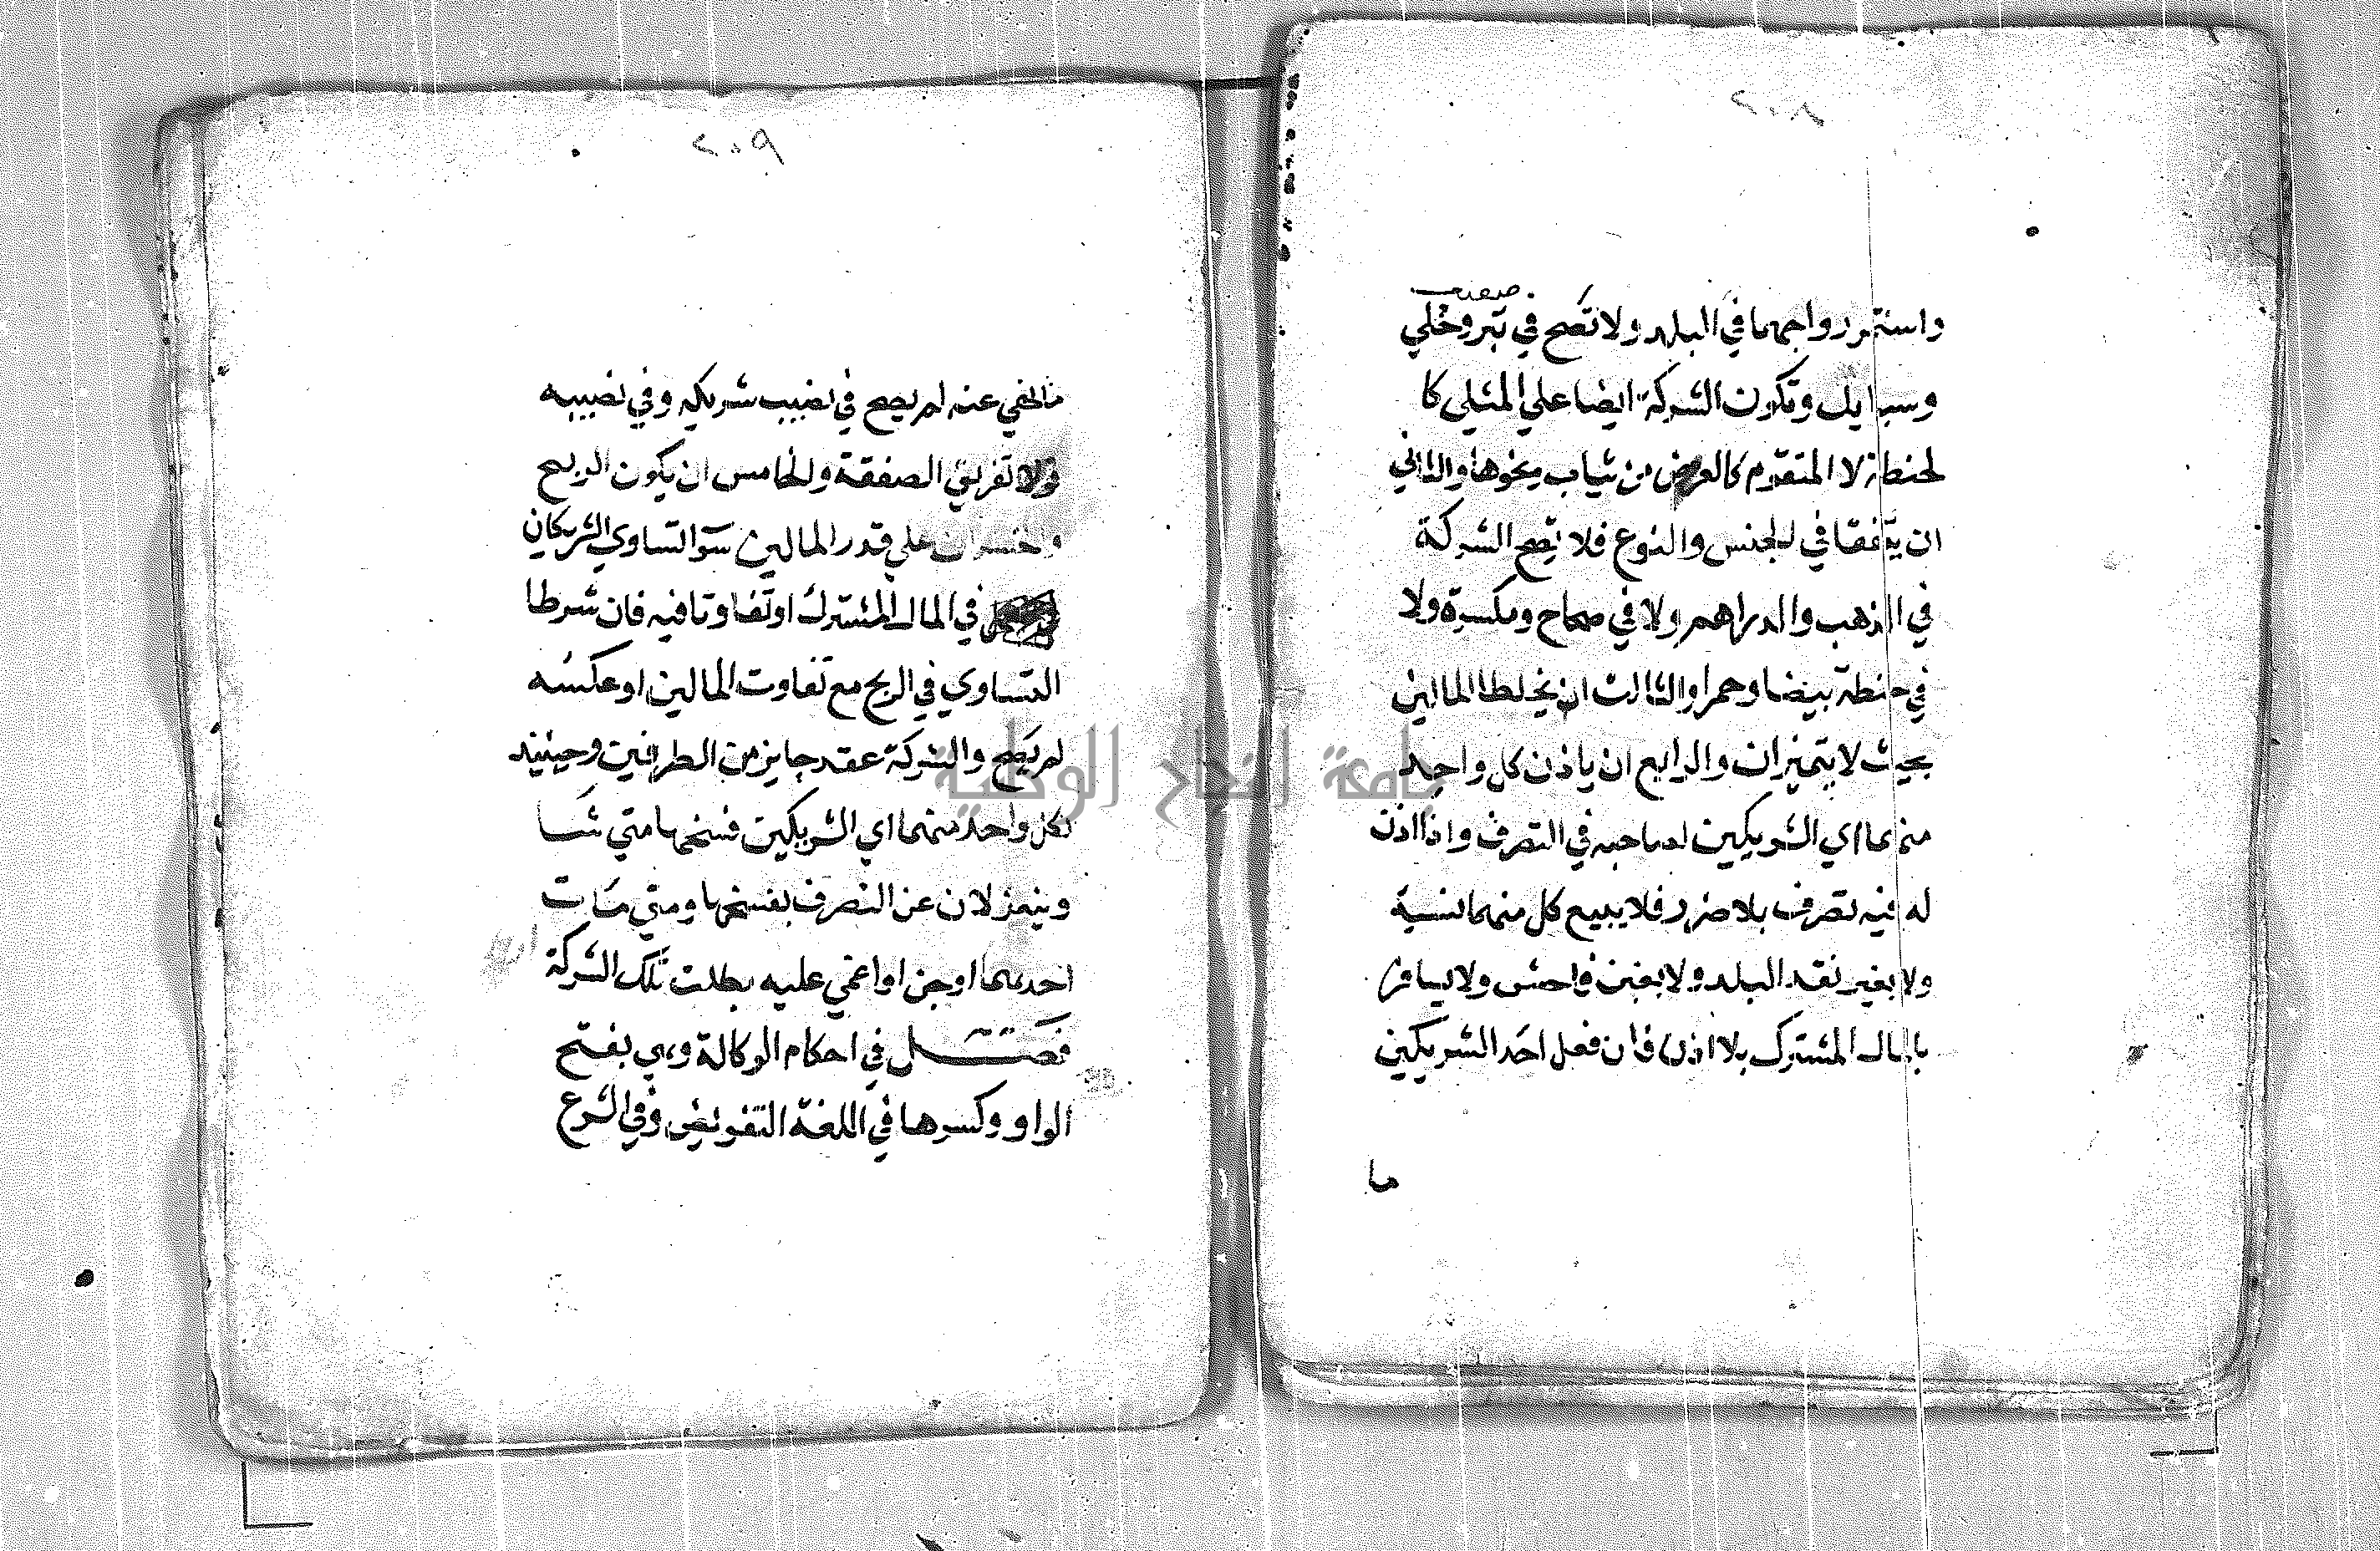 ٢٠٨
صعيف
واستمر رواجهما في البلد ولا تصح في تبر وحلي
وسبايل وتكون الشركة ايضا على المثلي كا
لحنطة لا المتقوم كالعروض من ثياب ونحوها والثاني
ان يتفقا في الجنس والنوع فلا تصح الشركة
في الذهب والدراهم ولا في صحاح ومكسرة ولا
في حنطة بيضا وحمرا والثالث ان يخلطا المالين
بحيث لا يتميزان والرابع ان ياذن كل واحد
منهما اي الشريكين لصاحبه في التصرف واذا اذن
له فيه تصرف بلا ضرر فلا يبيع كل منهما نسية
ولا بغير نقد البلد ولا بغبن فاحش ولا يسافر
بالمال المشترك بلا اذن فان فعل احد الشريكين
ما
٢٠٩
ما نهي عنه لم يصح في نصيب شريكه وفي نصيبه
قولا تفريق الصفقة والخامس ان يكون الربح
والخسران على قدر المالين سوا تساوي الشريكان
في المال المشترك او تفاوتا فيه فان شرطا
التساوي في الربح مع تفاوت المالين او عكسه
لم يصح والشركة عقد جايز من الطرفين وحينيذ
لكل واحد منهما اي الشريكين فسخها متي شا
وينعزلان عن التصرف بفسخها ومتي مات
احدهما او جن او اغمي عليه بطلت تلك الشركة
فصل في احكام الوكالة وهي بفتح
الواو وكسرها في اللغة التفويض وفي الشرع
جامعة النجاح الوطنية